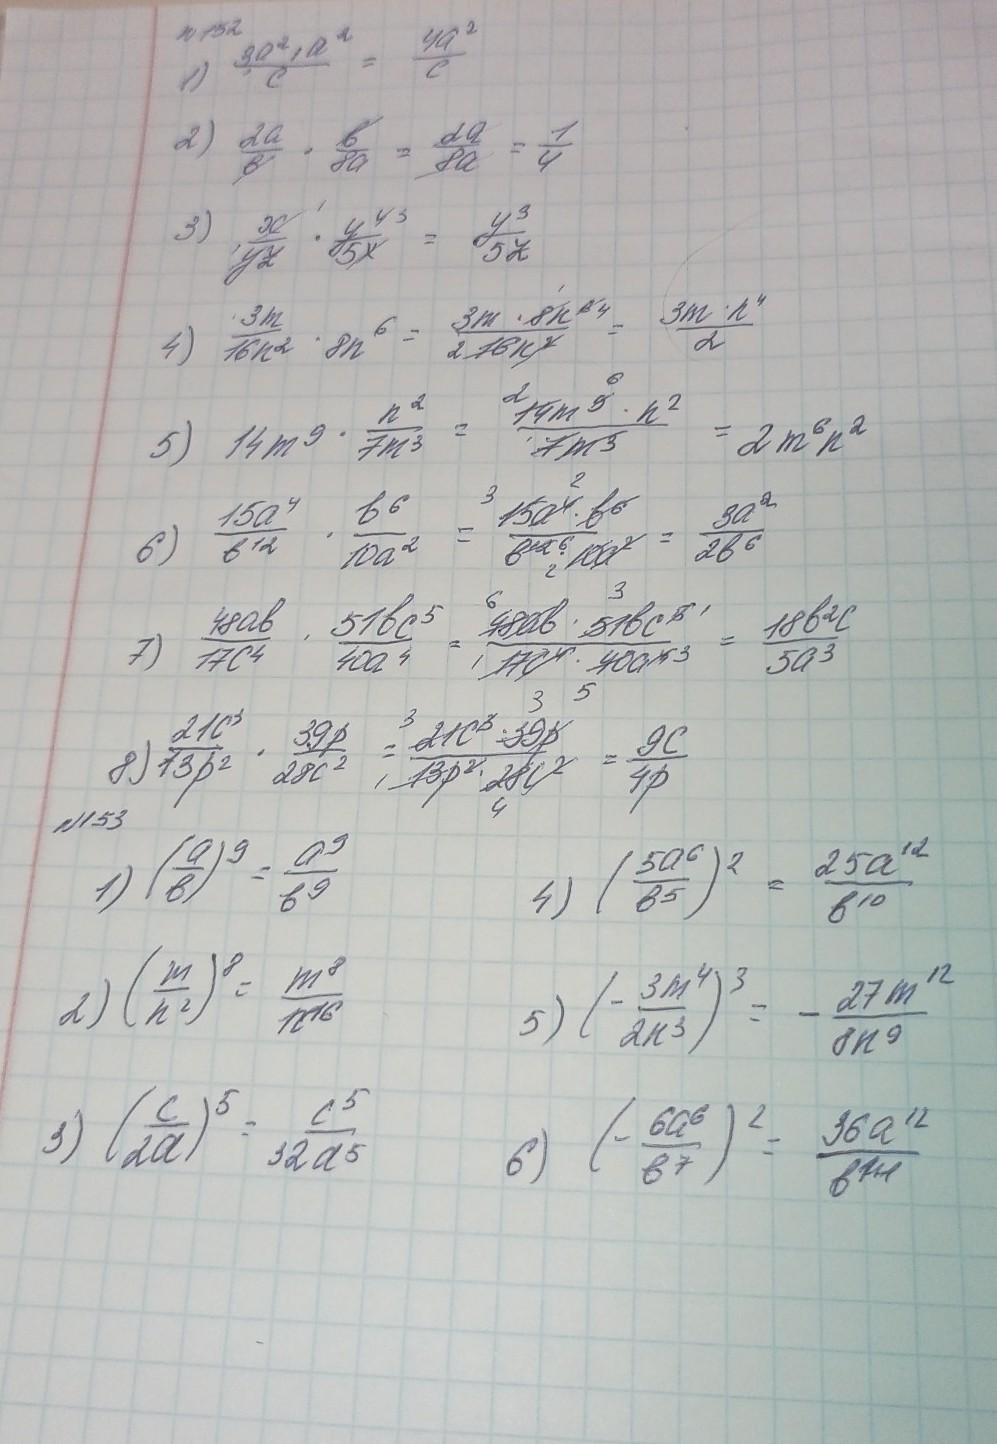 №152
1) (3a² · a²)/c = 4a²/c
2) 2a/в · в/8a = 2a/8a = 1/4
3) x/yz · y⁴ ³/5x = y³/5z
4) 3m/16n² · 8n⁶ = 3m · 8n⁶ ⁴/2 16n² = 3m · n⁴/2
5) 14m⁹ · n²/7m³ = ² 14m⁹ ⁶ · n²/7m³ = 2m⁶n²
6) 15a⁴/в¹² · в⁶/10a² = ³ 15a⁴ ² · в⁶/в¹² ⁶ · ₂ 10a² = 3a²/2в⁶
7) 48aв/17c⁴ · 51вc⁵/40a⁴ = ⁶ 48aв · ³ 51вc⁵ ¹/₁ 17c⁴ · 40a⁴ ³ ₅ = 18в²c/5a³
8) 21c³/13p² · 39p/28c² = ³ 21c³ · ³ 39p/₁ 13p² · 28c² ₄ = 9c/4p
№153
1) (a/в)⁹ = a⁹/в⁹ 4) (5a⁶/в⁵)² = 25a¹²/в¹⁰
2) (m/n²)⁸ = m⁸/n¹⁶ 5) (- 3m⁴/2n³)³ = - 27m¹²/8n⁹
3) (c/2d)⁵ = c⁵/32d⁵ 6) (- 6a⁶/в⁷)² = 36a¹²/в¹⁴